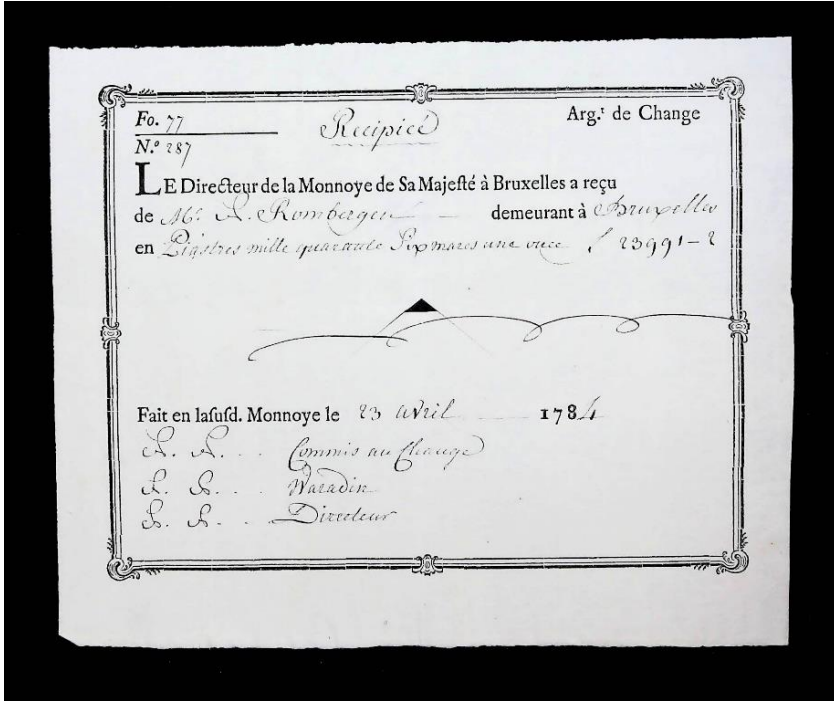 Fo. 77
N.º 287
Recipicé
Arg.t de Change
LE Directeur de la Monnoye de Sa Majeſté à Bruxelles a reçu
de Mr. Rombergen demeurant à Bruxelles
en Piastres mille quarante Six marcs une once f 23991-2
Fait en laſuſd. Monnoye le 23 avril 1784
Commis au Change
Waradin
Directeur